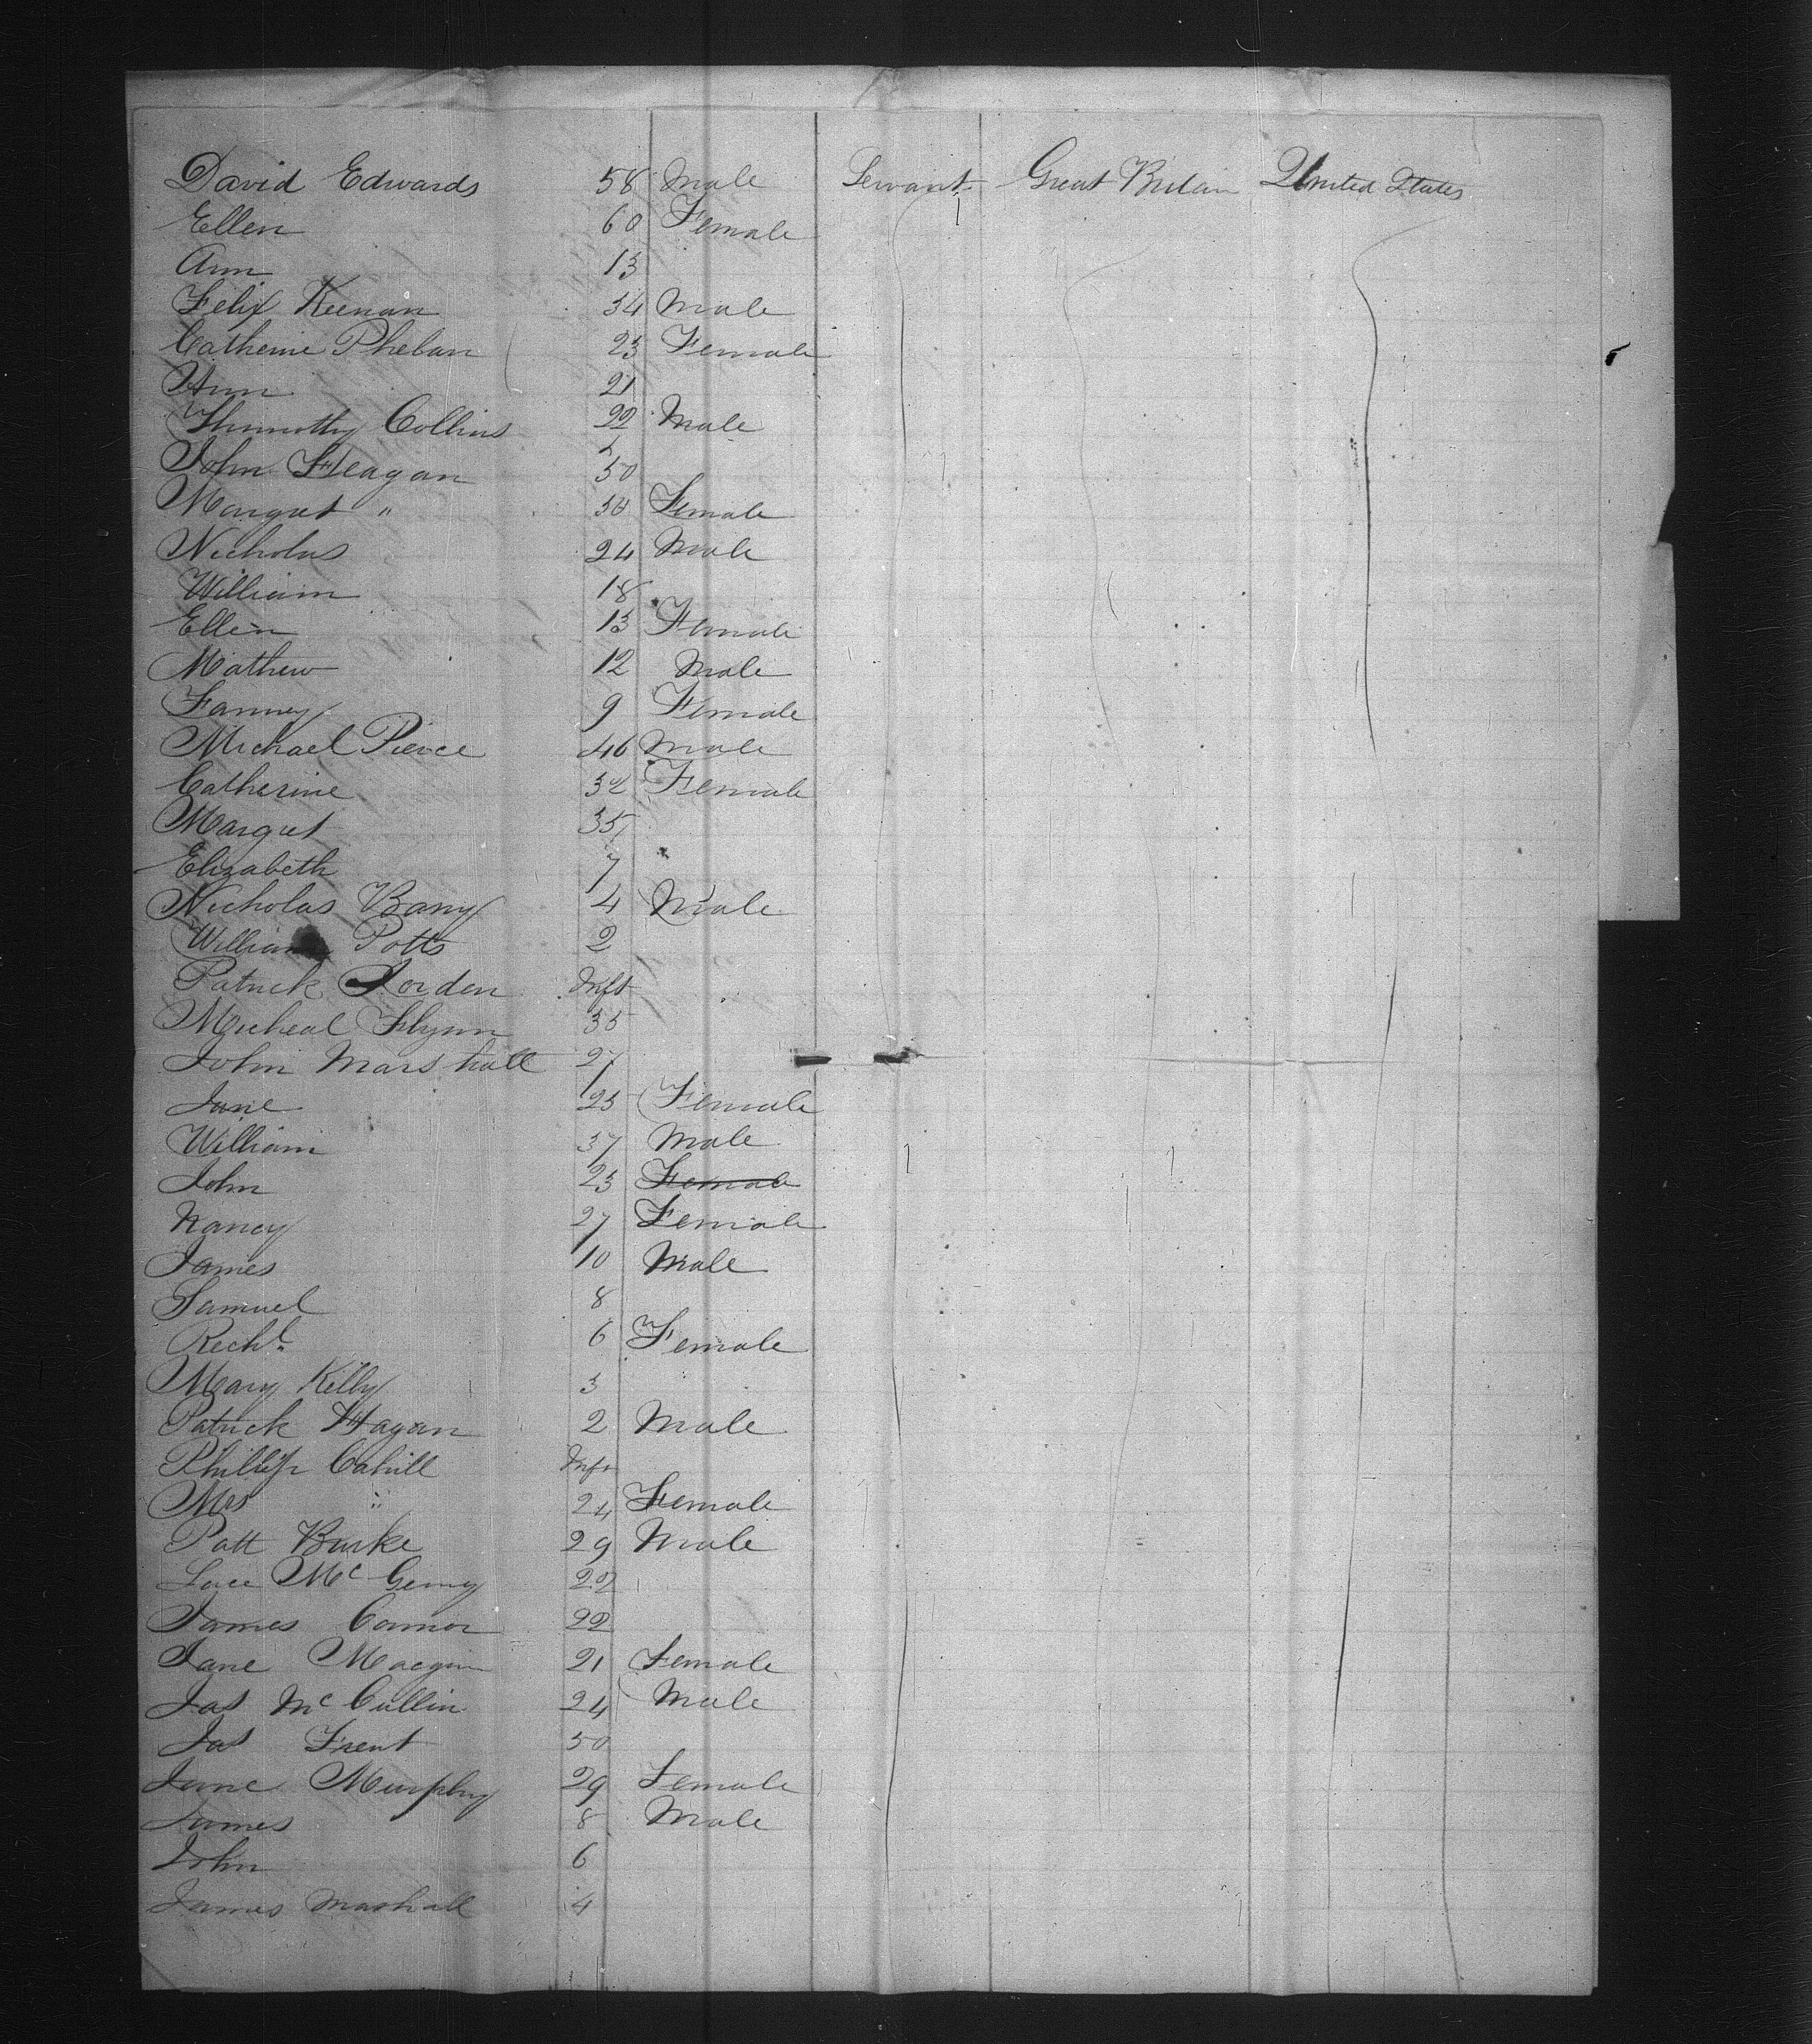 David Edwards 58 Male Servant Great Britain United States
Ellen 60 Female
Ann 13
Felix Keenan 34 Male
Catherine Phelan 23 Female
Ann 21
Thimothy Collins 22 Male
John Fleagan 50
Margret " 50 Female
Nicholas 24 Male
William 18
Ellen 13 Female
Mathew 12 Male
Fanney 9 Female
Michael Pierce 46 Male
Catherine 32 Female
Margret 35
Elizabeth 7
Nicholas Barry 4 Male
William Potts 2
Patrick Jorden Inft
Micheal Flynn 35
John Marshall 27
Jane 25 Female
William 37 Male
John 23 Female
Nancy 27 Female
James 10 Male
Samuel 8
Rechl 6 Female
Mary Killy 3
Patrick Hagan 2 Male
Phillip Cahill Inft
Mrs " 24 Female
Patt Burke 29 Male
Mc 22
James Connor 22
Jane 21 Female
Jas McCullin 24 Male
Jas Frent 50
Jane Murphy 29 Female
James 8 Male
John 6
James Mashall 4